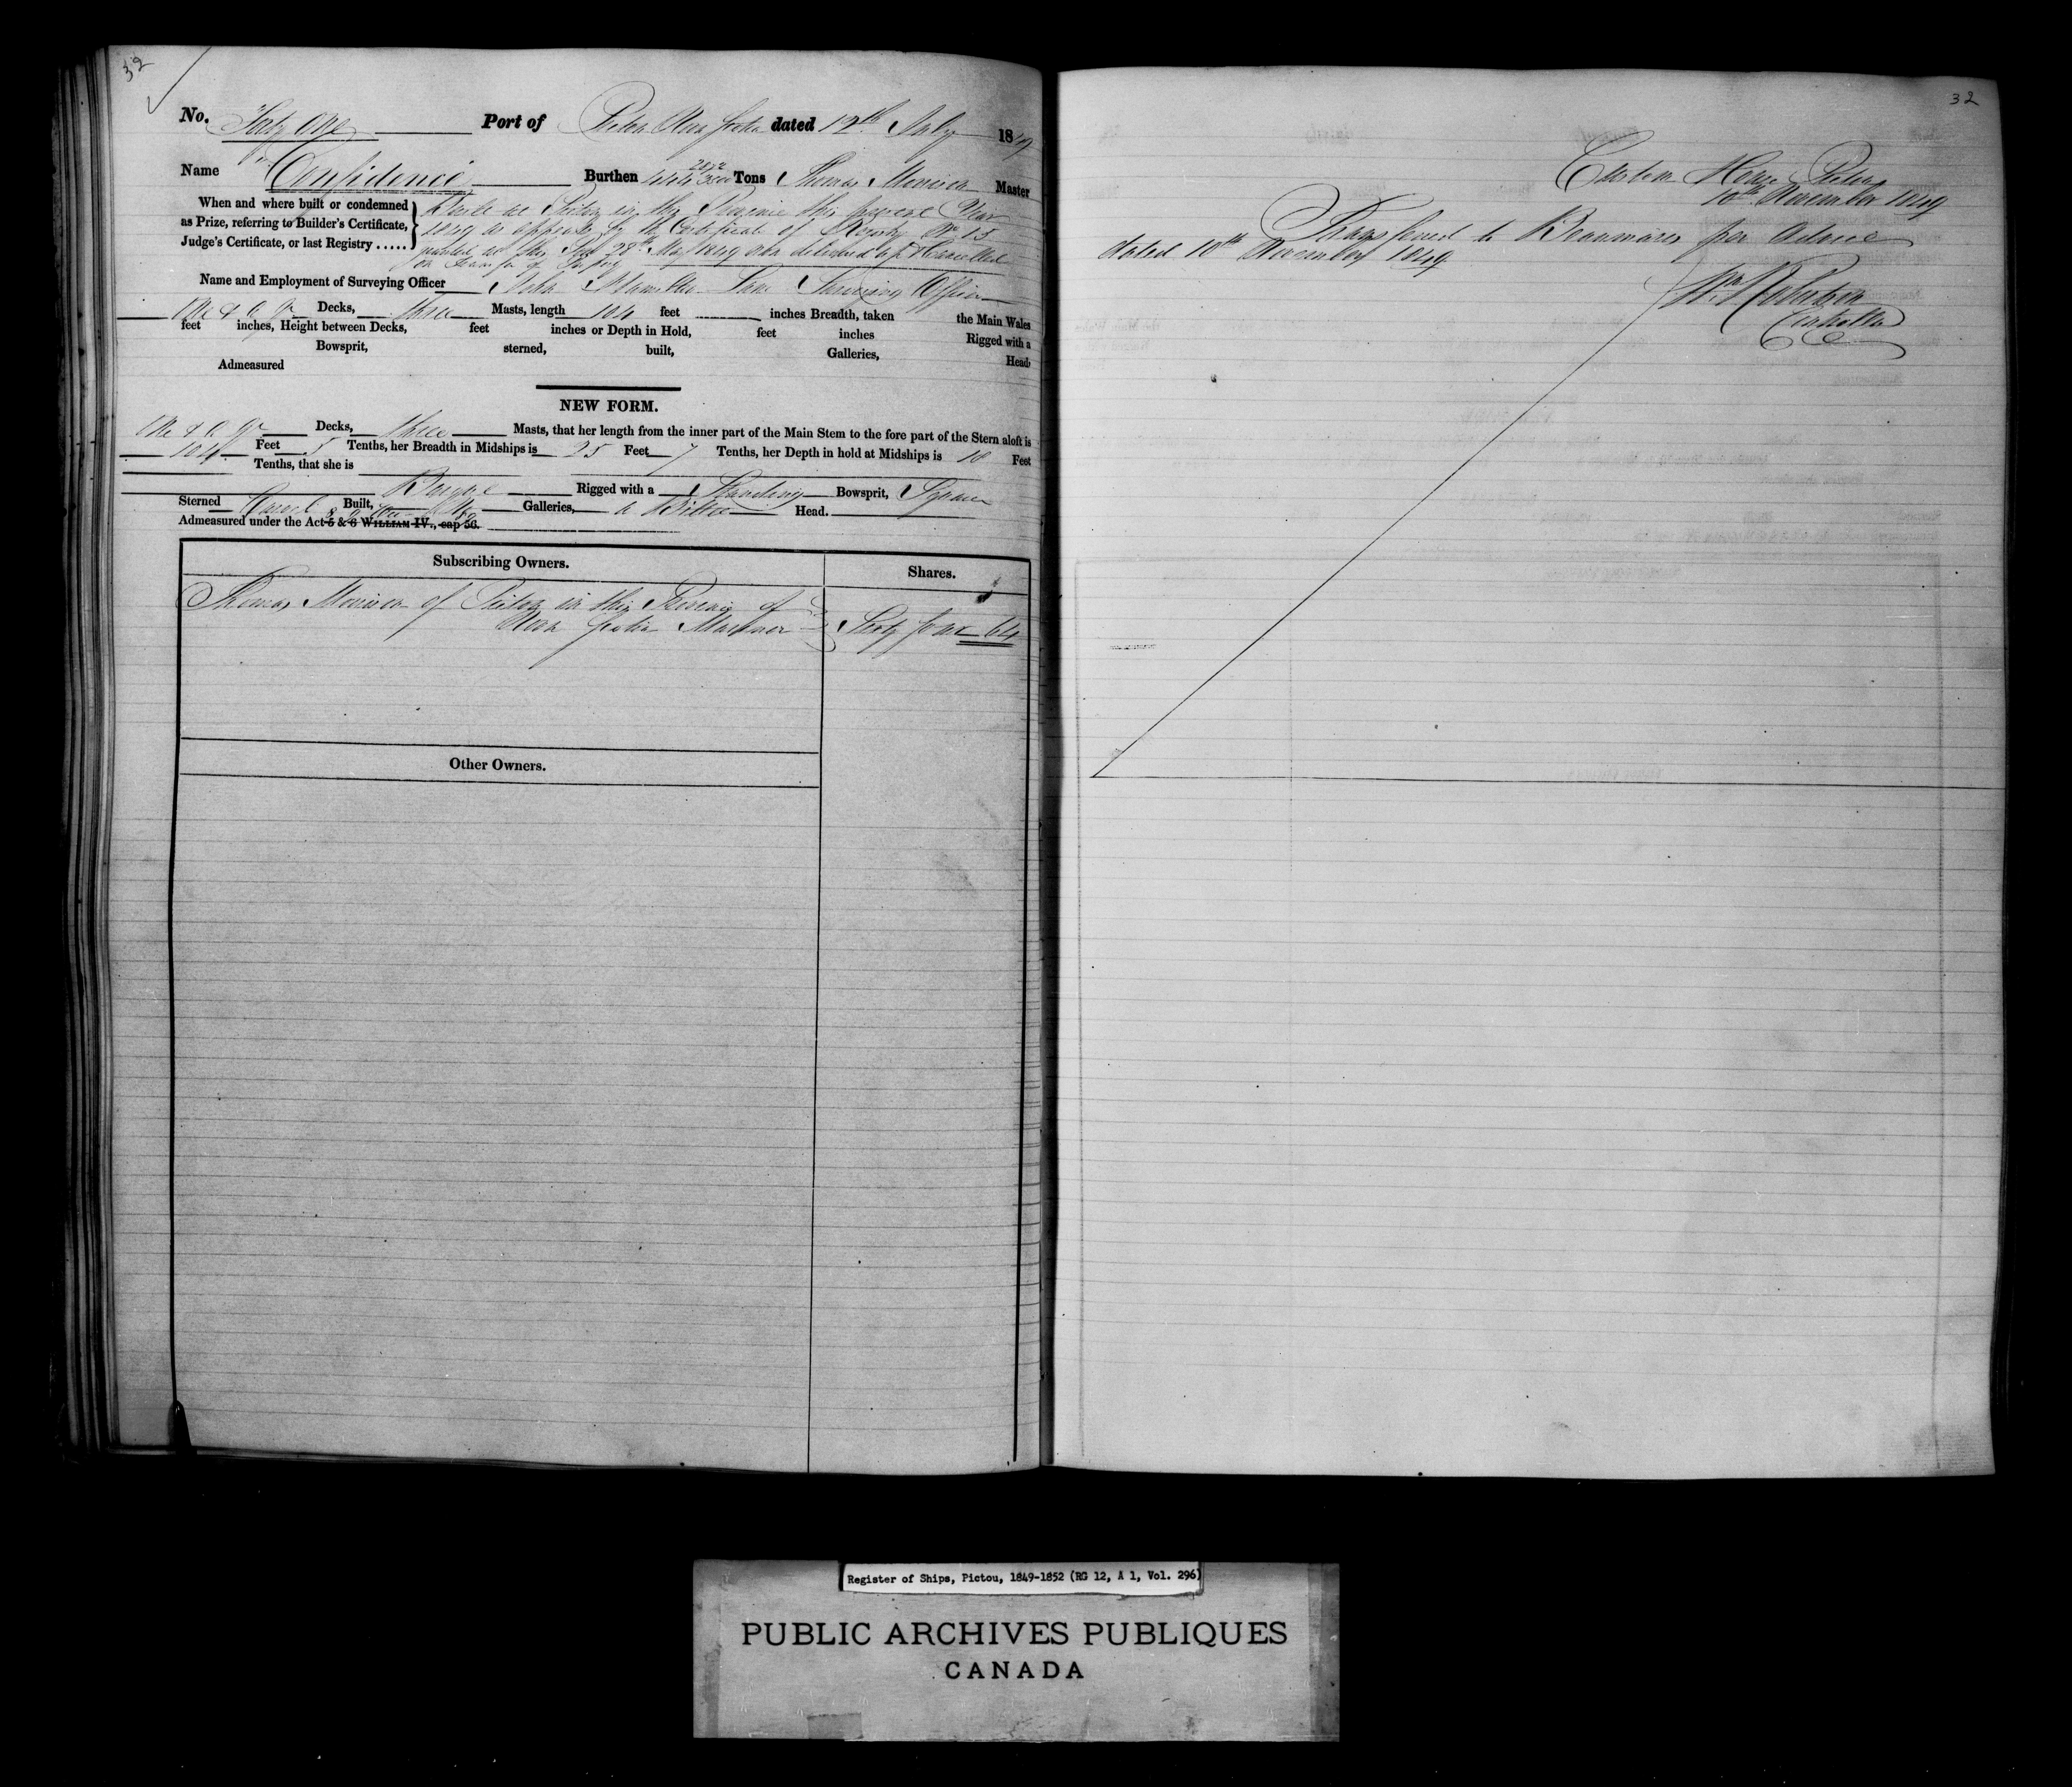 32
No. Forty One Port of Pictou Nova Scotia dated 12th July 1849
Name "Confidence" Burthen 444 Tons Thomas Morison Master
When and where built or condemned
as Prize, referring to Builder's Certificate,
Judge's Certificate, or last Registry .....
Built at Pictou in this Province this present Year
1849 as appears by the Certificate of Registry No 15
granted at this Port 28th May 1849 now delivered up & Cancelled
on Transfer of Property
Name and Employment of Surveying Officer John Hamilton Lane Surveying Officer
One & 1/4 Qr Decks, three Masts, length 104 feet inches Breadth, taken the Main Wales
feet inches, Height between Decks, feet inches or Depth in Hold, feet inches Rigged with a
Bowsprit, sterned, built, Galleries, Head
Admeasured
NEW FORM.
One & Qr Decks, three Masts, that her length from the inner part of the Main Stem to the fore part of the Stern aloft is
104 Feet 5 Tenths, her Breadth in Midships is 25 Feet 7 Tenths, her Depth in hold at Midships is 18 Feet
Tenths, that she is
Barque Rigged with a Standing Bowsprit, Square
Sterned Carvel Built, Galleries, a Billet Head.
Admeasured under the Act 5 & 6 WILLIAM IV., cap 56.
Subscribing Owners.
Shares.
Thomas Morison of Pictou in this Province of
Nova Scotia Mariner
Sixty four 64
Other Owners.
32
Custom House Pictou
10th November 1849
Transferred to Beaumaris per Advice
dated 10th November 1849
Wm Robertson
Controller
Register of Ships, Pictou, 1849-1852 (RG 12, A 1, Vol. 296)
PUBLIC ARCHIVES PUBLIQUES
CANADA